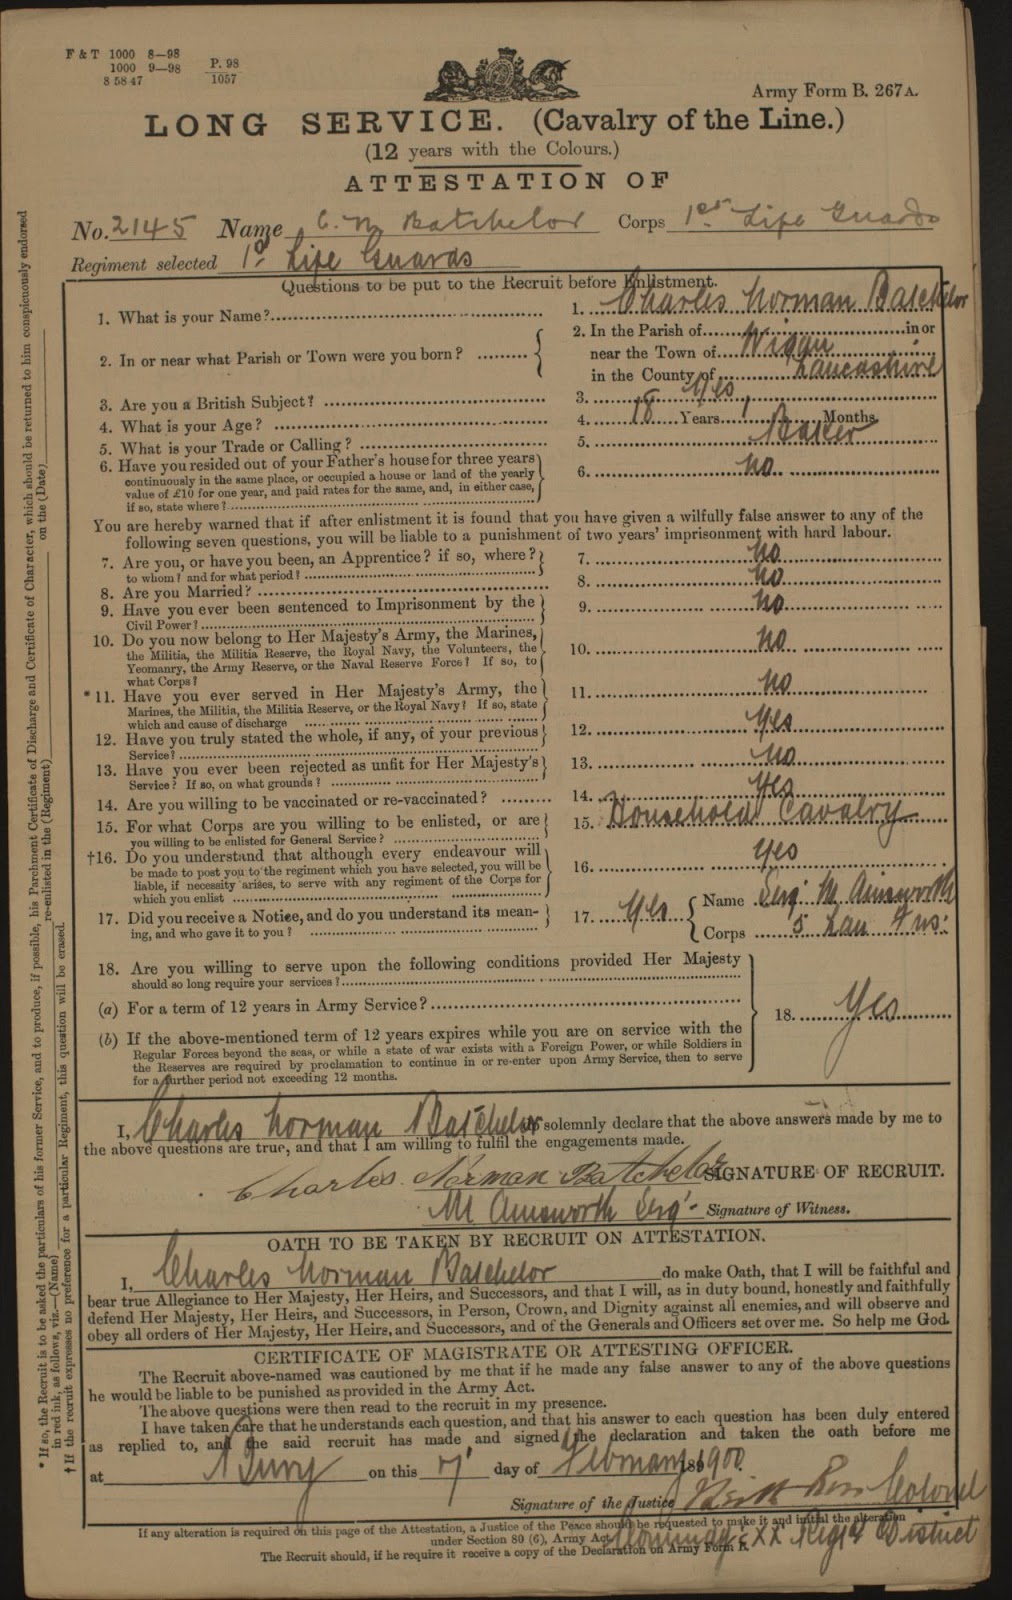 F & T 1000 8—98
1000 9—98
8 58 47
P. 98
1057
Army Form B. 267A.
LONG SERVICE. (Cavalry of the Line.)
(12 years with the Colours.)
ATTESTATION OF
No. 2145 Name C. N. Batchelor Corps 1st Life Guards
Regiment selected 1st Life Guards
Questions to be put to the Recruit before Enlistment.
1. What is your Name? 1. Charles Norman Batchelor
2. In or near what Parish or Town were you born? 2. In the Parish of in or
near the Town of Wigan
in the County of Lancashire
3. Are you a British Subject? 3. Yes
4. What is your Age? 4. 18 Years 1 Months.
5. What is your Trade or Calling? 5. Baker
6. Have you resided out of your Father's house for three years
continuously in the same place, or occupied a house or land of the yearly
value of £10 for one year, and paid rates for the same, and, in either case,
if so, state where? 6. No
You are hereby warned that if after enlistment it is found that you have given a wilfully false answer to any of the
following seven questions, you will be liable to a punishment of two years' imprisonment with hard labour.
7. Are you, or have you been, an Apprentice? if so, where?
to whom? and for what period? 7. No
8. Are you Married? 8. No
9. Have you ever been sentenced to Imprisonment by the
Civil Power? 9. No
10. Do you now belong to Her Majesty's Army, the Marines,
the Militia, the Militia Reserve, the Royal Navy, the Volunteers, the
Yeomanry, the Army Reserve, or the Naval Reserve Force? If so, to
what Corps? 10. No
*11. Have you ever served in Her Majesty's Army, the
Marines, the Militia, the Militia Reserve, or the Royal Navy? If so, state
which and cause of discharge 11. No
12. Have you truly stated the whole, if any, of your previous
Service? 12. Yes
13. Have you ever been rejected as unfit for Her Majesty's
Service? If so, on what grounds? 13. No
14. Are you willing to be vaccinated or re-vaccinated? 14. Yes
15. For what Corps are you willing to be enlisted, or are
you willing to be enlisted for General Service? 15. Household Cavalry
†16. Do you understand that although every endeavour will
be made to post you to the regiment which you have selected, you will be
liable, if necessity arises, to serve with any regiment of the Corps for
which you enlist 16. Yes
17. Did you receive a Notice, and do you understand its mean-
ing, and who gave it to you? 17. Yes Name Sergt M Ainsworth
Corps 5 Lan Fus:
18. Are you willing to serve upon the following conditions provided Her Majesty
should so long require your services?
(a) For a term of 12 years in Army Service? 18. Yes
(b) If the above-mentioned term of 12 years expires while you are on service with the
Regular Forces beyond the seas, or while a state of war exists with a Foreign Power, or while Soldiers in
the Reserves are required by proclamation to continue in or re-enter upon Army Service, then to serve
for a further period not exceeding 12 months.
I, Charles Norman Batchelor do solemnly declare that the above answers made by me to
the above questions are true, and that I am willing to fulfil the engagements made.
Charles Norman Batchelor SIGNATURE OF RECRUIT.
M Ainsworth Sergt Signature of Witness.
OATH TO BE TAKEN BY RECRUIT ON ATTESTATION.
I, Charles Norman Batchelor do make Oath, that I will be faithful and
bear true Allegiance to Her Majesty, Her Heirs, and Successors, and that I will, as in duty bound, honestly and faithfully
defend Her Majesty, Her Heirs, and Successors, in Person, Crown, and Dignity against all enemies, and will observe and
obey all orders of Her Majesty, Her Heirs, and Successors, and of the Generals and Officers set over me. So help me God.
CERTIFICATE OF MAGISTRATE OR ATTESTING OFFICER.
The Recruit above-named was cautioned by me that if he made any false answer to any of the above questions
he would be liable to be punished as provided in the Army Act.
The above questions were then read to the recruit in my presence.
I have taken care that he understands each question, and that his answer to each question has been duly entered
as replied to, and the said recruit has made and signed the declaration and taken the oath before me
at Bury on this 7 day of February 1900.
Signature of the Justice Colonel
If any alteration is required on this page of the Attestation, a Justice of the Peace should be requested to make it and initial the alteration
under Section 80 (6), Army Act. Commdg XX Regtl District
The Recruit should, if he require it receive a copy of the Declaration on Army Form B.
* If so, the Recruit is to be asked the particulars of his former Service, and to produce, if possible, his Parchment Certificate of Discharge and Certificate of Character, which should be returned to him conspicuously endorsed
in red ink, as follows, viz.—(Name) re-enlisted in the (Regiment) on the (Date)
† If the recruit expresses no preference for a particular Regiment, this question will be erased.